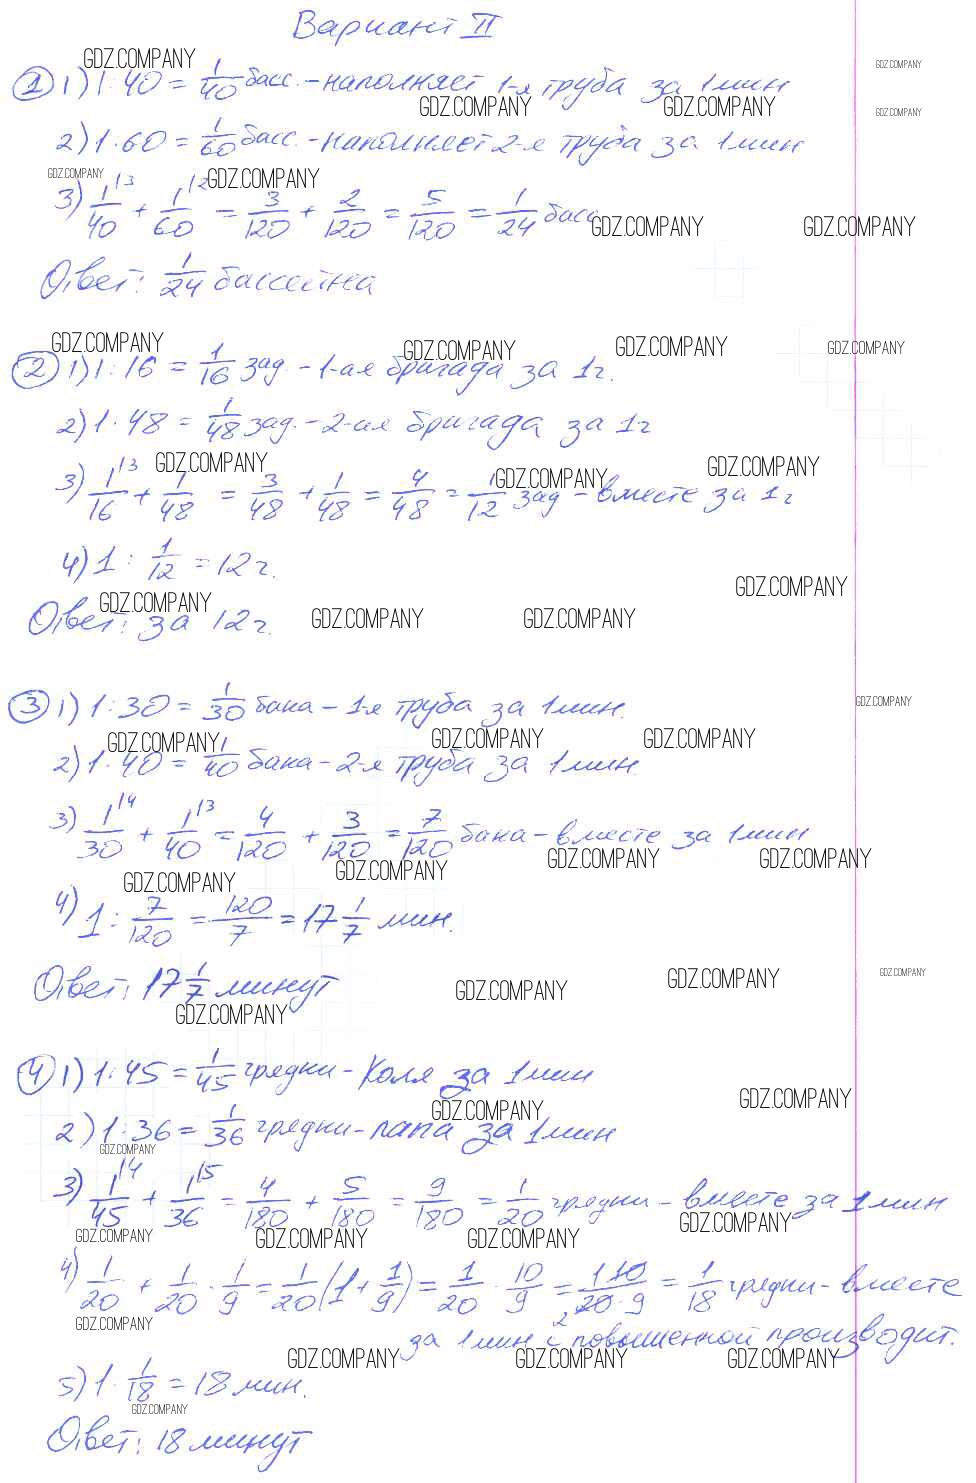 Вариант II
GDZ.COMPANY GDZ.COMPANY
① 1) 1:40 = 1/40 басс. - наполняет 1-я труба за 1 мин
GDZ.COMPANY GDZ.COMPANY GDZ.COMPANY
2) 1:60 = 1/60 басс. - наполняет 2-я труба за 1 мин
GDZ.COMPANY GDZ.COMPANY
3) 1/40 \3 + 1/60 \2 = 3/120 + 2/120 = 5/120 = 1/24 басс
GDZ.COMPANY GDZ.COMPANY
Ответ: 1/24 бассейна
GDZ.COMPANY GDZ.COMPANY GDZ.COMPANY GDZ.COMPANY
② 1) 1:16 = 1/16 зад. - 1-ая бригада за 1ч.
2) 1:48 = 1/48 зад. - 2-ая бригада за 1ч
GDZ.COMPANY GDZ.COMPANY GDZ.COMPANY
3) 1/16 \3 + 1/48 = 3/48 + 1/48 = 4/48 = 1/12 зад - вместе за 1ч
4) 1 : 1/12 = 12ч.
GDZ.COMPANY
GDZ.COMPANY GDZ.COMPANY GDZ.COMPANY
Ответ: за 12ч.
③ 1) 1:30 = 1/30 бака - 1-я труба за 1 мин.
GDZ.COMPANY
GDZ.COMPANY GDZ.COMPANY GDZ.COMPANY
2) 1:40 = 1/40 бака - 2-я труба за 1 мин.
3) 1/30 \4 + 1/40 \3 = 4/120 + 3/120 = 7/120 бака - вместе за 1 мин
GDZ.COMPANY GDZ.COMPANY GDZ.COMPANY GDZ.COMPANY
4) 1 : 7/120 = 120/7 = 17 1/7 мин.
Ответ: 17 1/7 минут
GDZ.COMPANY GDZ.COMPANY GDZ.COMPANY
GDZ.COMPANY
④ 1) 1:45 = 1/45 грядки - Коля за 1 мин
GDZ.COMPANY GDZ.COMPANY
2) 1:36 = 1/36 грядки - папа за 1 мин
GDZ.COMPANY
3) 1/45 \4 + 1/36 \5 = 4/180 + 5/180 = 9/180 = 1/20 грядки - вместе за 1 мин
GDZ.COMPANY GDZ.COMPANY GDZ.COMPANY GDZ.COMPANY
4) 1/20 + 1/20 · 1/9 = 1/20 (1 + 1/9) = 1/20 · 10/9 = 1·10/20·9 2 = 1/18 грядки - вместе
GDZ.COMPANY
за 1 мин с повышенной производит.
GDZ.COMPANY GDZ.COMPANY GDZ.COMPANY
5) 1 : 1/18 = 18 мин.
GDZ.COMPANY
Ответ: 18 минут